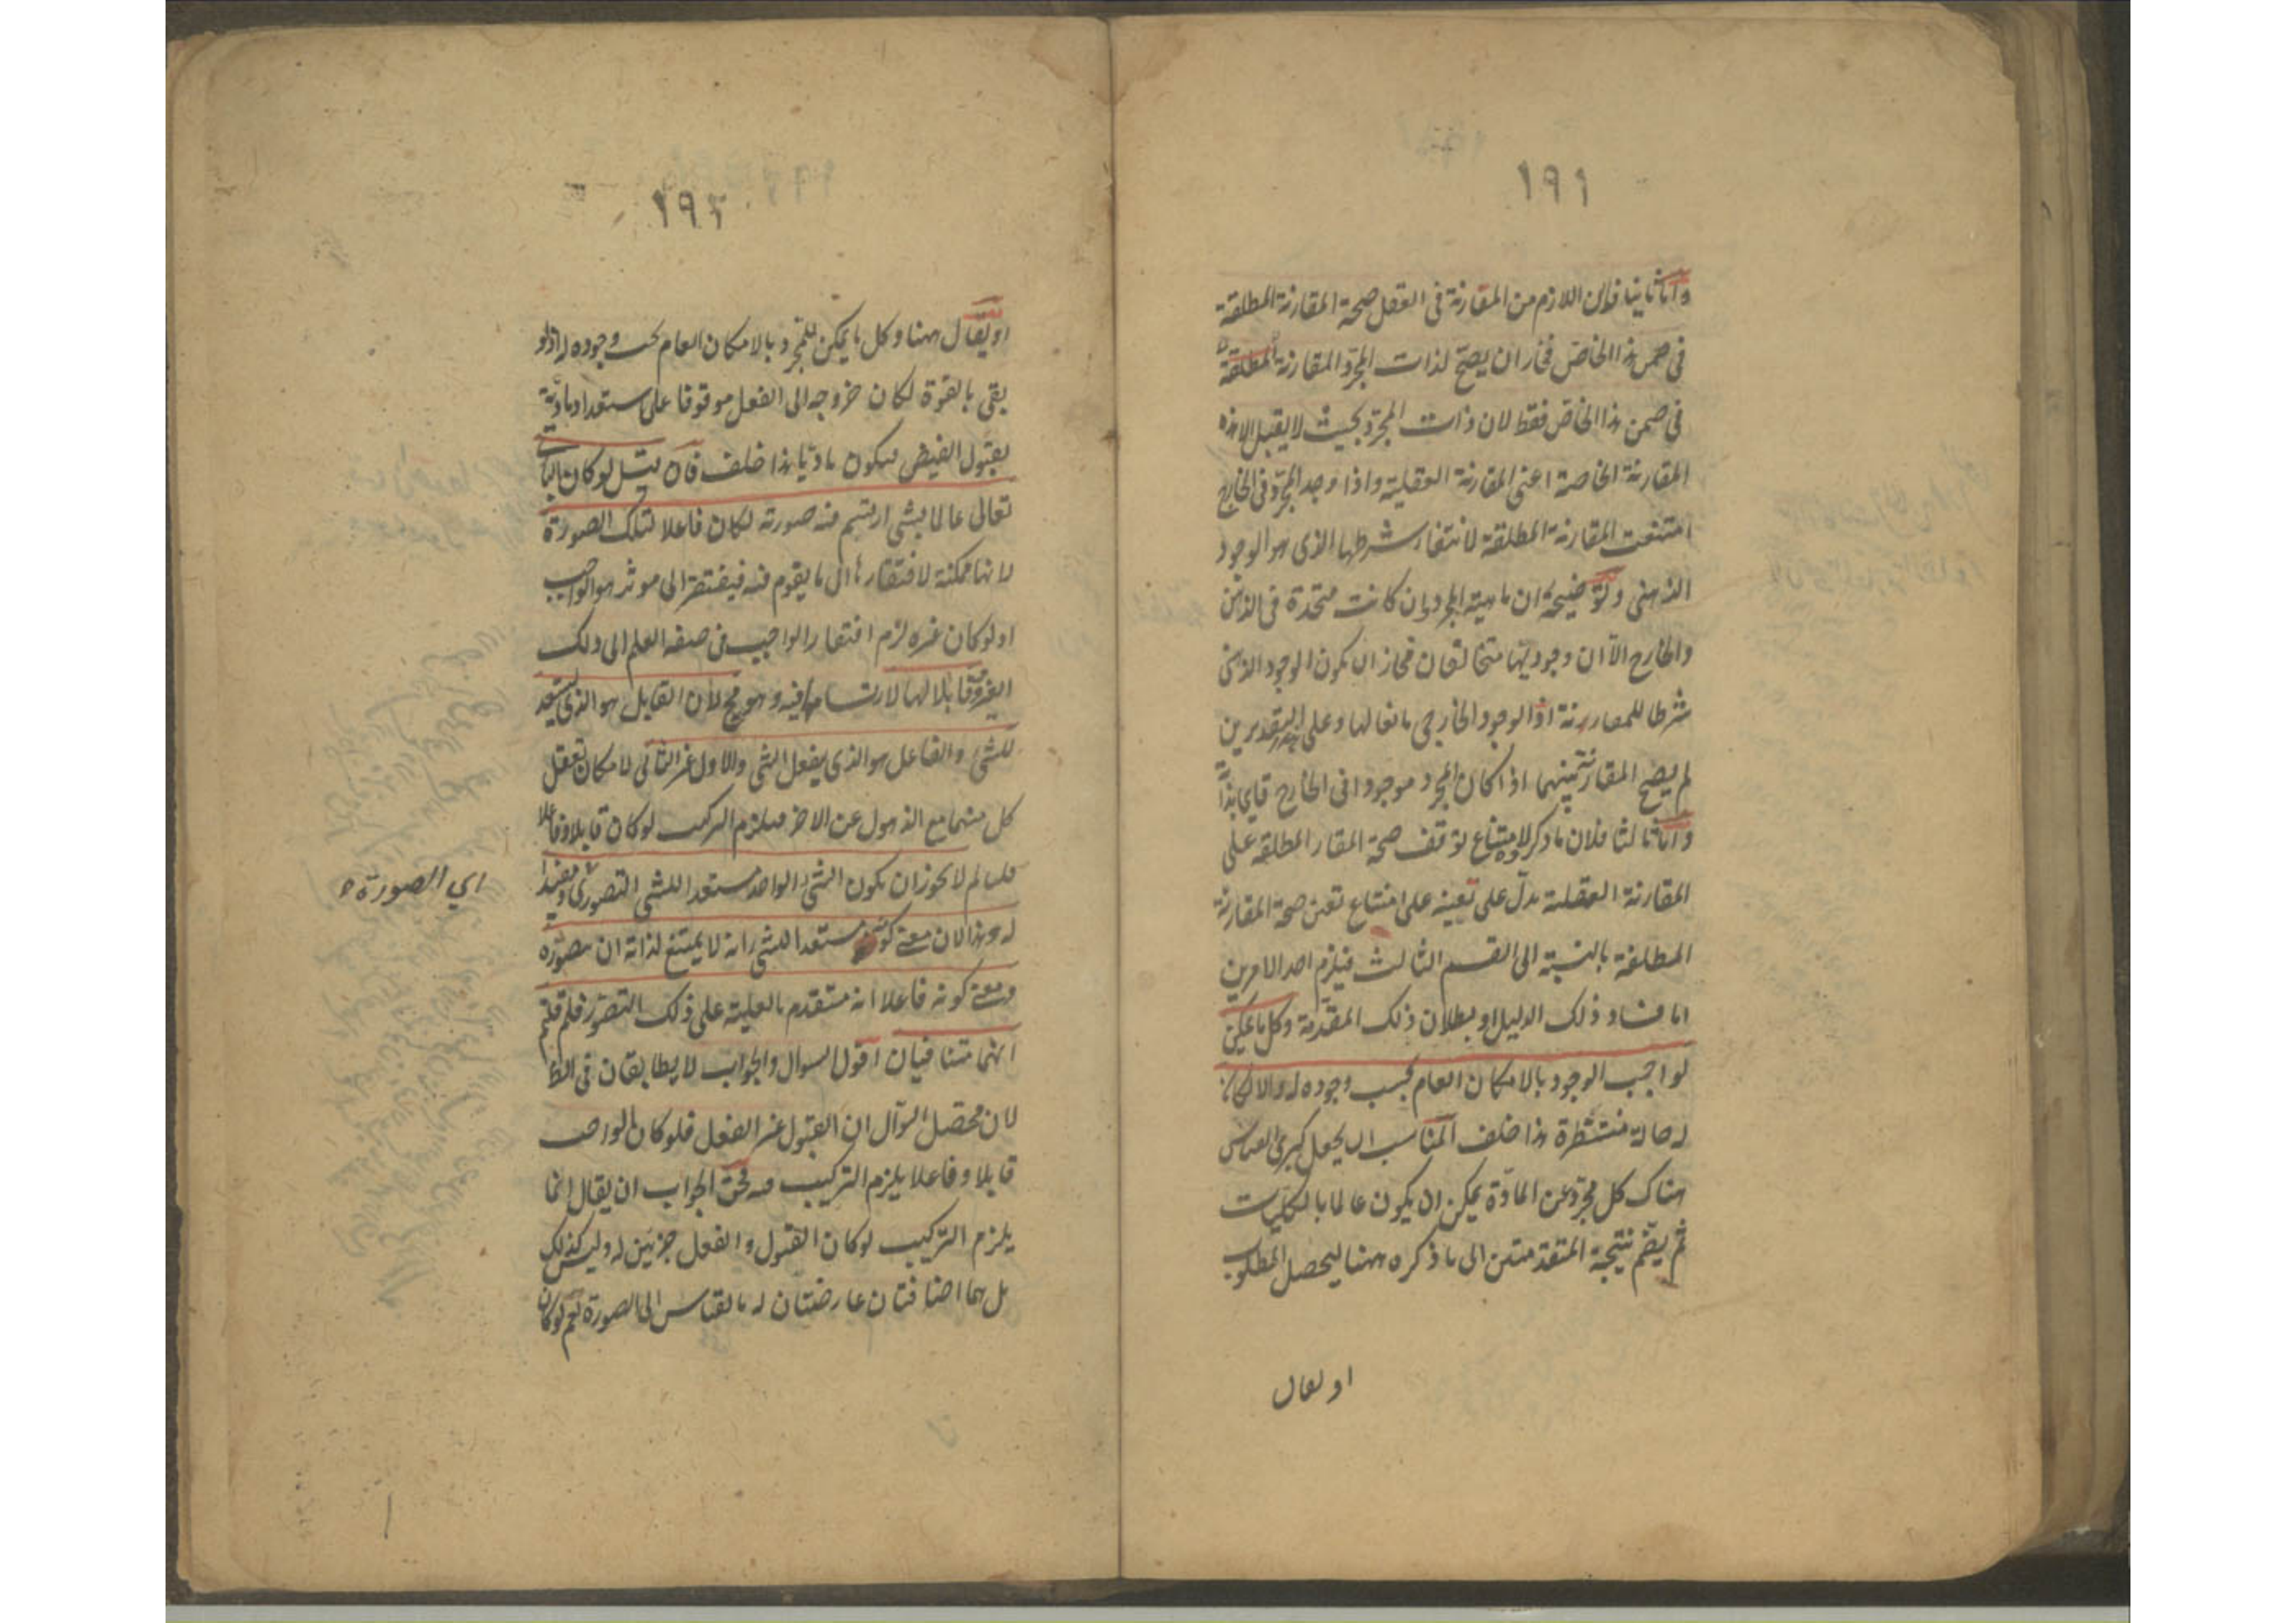 ١٩١
واما ثانيا فلان اللازم من المقارنة فى العقل صحة المقارنة المطلقة
فى ضمن هذا الخاص فجاز ان يصح لذات المجرد المقارنة المطلقة
فى ضمن هذا الخاص فقط لان ذات المجرد بحيث لا يقبل الا هذه
المقارنة الخاصة اعنى المقارنة العقلية واذا وجد المجرد فى الخارج
امتنعت المقارنة المطلقة لانتفاء شرطها الذى هو الوجود
الذهنى وتوضيحه ان ماهية المجرد وان كانت متحدة فى الذهن
والخارج الا ان وجوديها متخالفان فجاز ان يكون الوجود الذهنى
شرطا للمقارنة او الوجود الخارجى مانعا لها وعلى التقديرين
لم يصح المقارنة بينهما اذا كان المجرد موجودا فى الخارج قايما بذاته
واما ثالثا فلان ما ذكر لامتناع توقف صحة المقار المطلقه على
المقارنة العقلية يدل على تعينه على امتناع تعين صحة المقارنة
المطلقة بالنسبة الى القسم الثالث فيلزم احد الامرين
اما فساد ذلك الدليل او بطلان ذلك المقدمة وكل ما يمكن
لواجب الوجود بالامكان العام بحسب وجوده له والا لكان
له حالة منتظرة هذا خلف المناسب ان يجعل كبرى القياس
هناك كل مجرد عن المادة يمكن ان يكون عالما بالكليات
ثم يضم نتيجة المتقدمتين الى ما ذكره ههنا ليحصل المطلوب
او يقال
١٩٢
او يقال ههنا وكل ما يمكن للمجرد بالامكان العام يجب وجوده له اذ لو
بقى بالقوة لكان خروجه الى الفعل موقوفا على استعداد مادية
بقبول الفيض فيكون ماديا هذا خلف فان قيل لو كان البارى
تعالى عالما بشى ارتسم فيه صورته لكان فاعلا لتلك الصورة
لانها ممكنة لافتقارها الى ما يقوم فيه فيفتقر الى موثر هو الواجب
اذ لو كان غيره لزم افتقار الواجب فى صفة العلم الى ذلك
الغير وقابلا لها لارتسامها فيه وهو مح لان القابل هو الذى يستعد
للشى والفاعل هو الذى يفعل الشى والاول غير الثانى لامكان تعقل
كل منهما مع الذهول عن الاخر فيلزم التركيب لو كان قابلا وفاعلا
قلنا لم لا يجوز ان يكون الشى الواحد مستعدا للشى التصورى ومفيدا
له وهذا لان معنى كونه مستعدا للشى انه لا يمتنع لذاته ان يتصوره
ومعنى كونه فاعلا انه متقدم بالعلية على ذلك التصور فلم قلتم
انهما متنافيان اقول السوال والجواب لا يطابقان فى الظ
لان محصل السوآل ان القبول غير الفعل فلو كان الواجب
قابلا وفاعلا يلزم التركيب فيه فحق الجواب ان يقال انما
يلزم التركيب لو كان القبول والفعل جزئين له وليس كذلك
بل هما اضافتان عارضتان له بالقياس الى الصورة نعم لو كان
اي الصورة